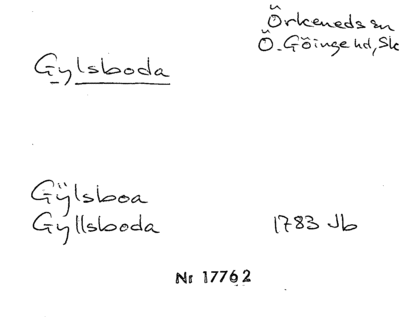 Örkeneds sn
Ö. Göinge hd, Sk
Gylsboda
Gÿlsboa
Gyllsboda 1783 Jb
Nr 17762